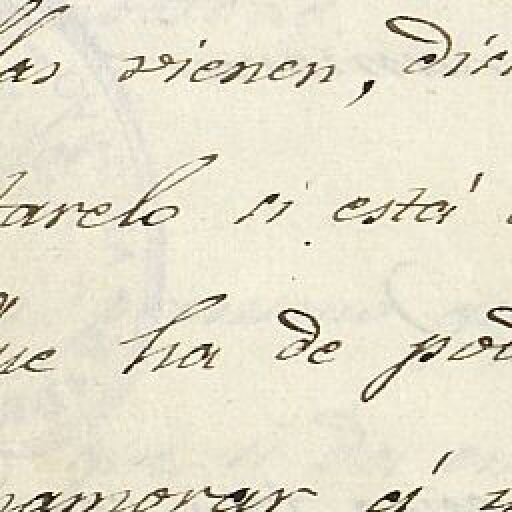 llas vienen, dici
tarelo si está
ue ha de pod
namorar á u